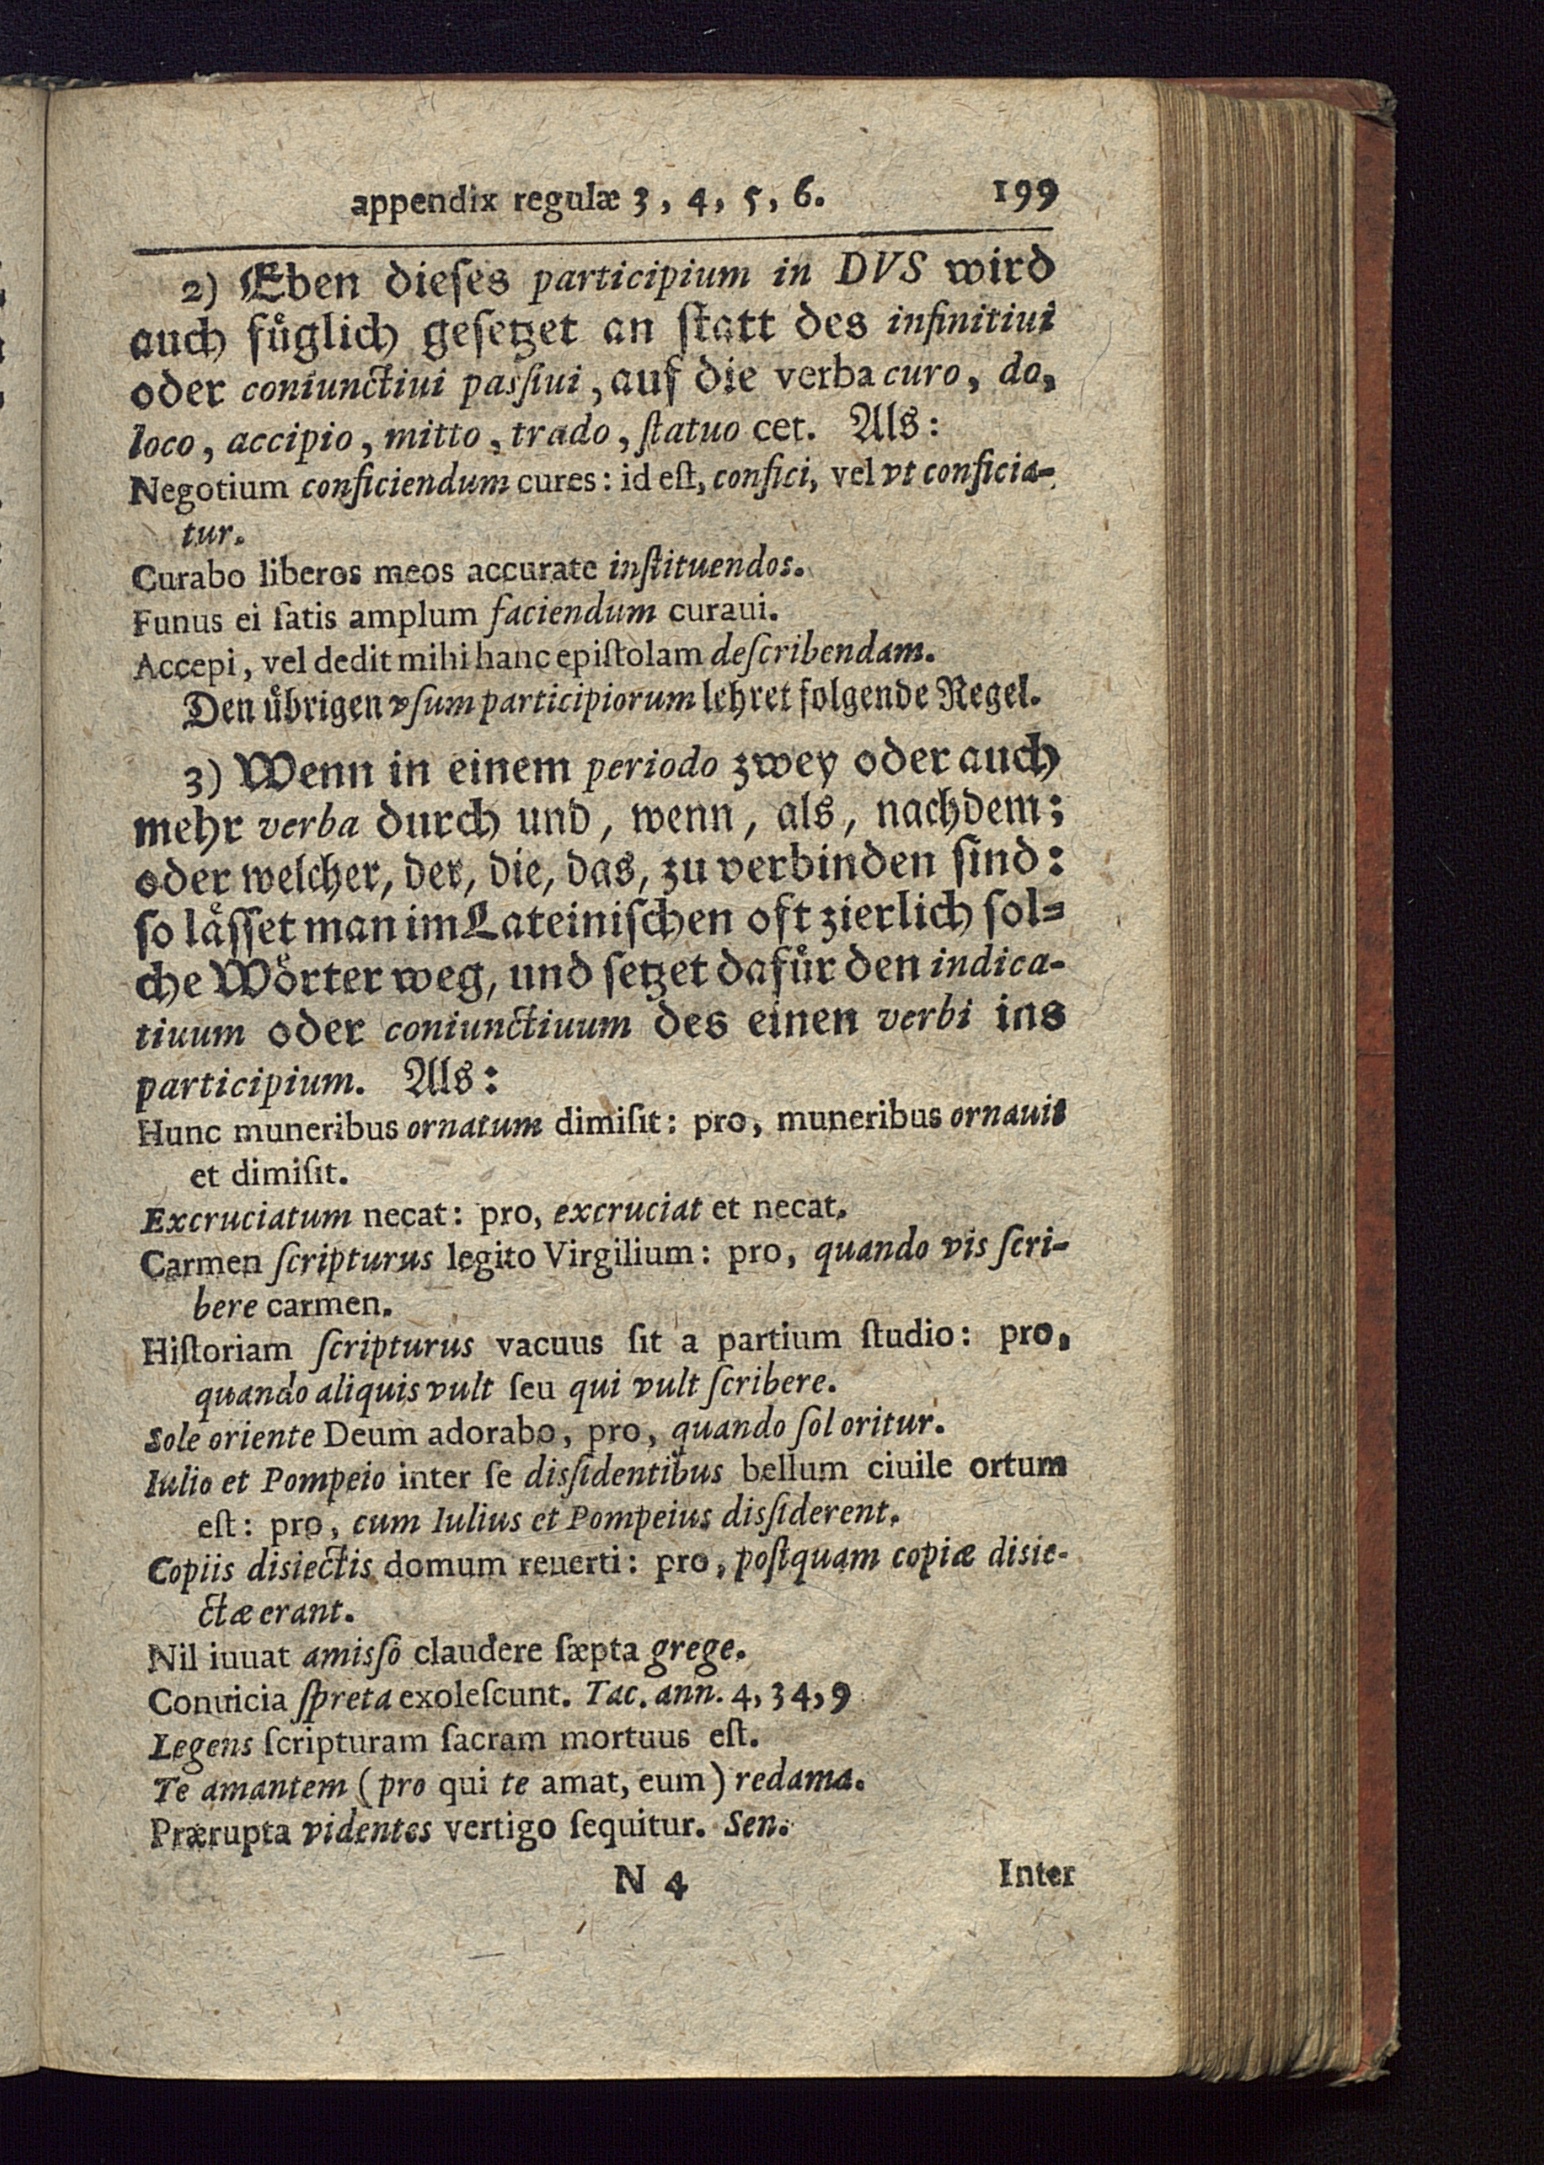 appendix regulæ 3, 4, 5, 6. 199
2) Eben dieſes participium in DVS wird
auch fuͤglich geſetzet an ſtatt des infinitiui
oder coniunctiui pasſiui, auf die verba curo, do,
loco, accipio, mitto, trado, ſtatuo cet. Als:
Negotium conficiendum cures: id eſt, confici, vel vt conficia-
tur.
Curabo liberos meos accurate inſtituendos.
Funus ei ſatis amplum faciendum curaui.
Accepi, vel dedit mihi hanc epiſtolam deſcribendam.
Den uͤbrigen vſum participiorum lehret folgende Regel.
3) Wenn in einem periodo zwey oder auch
mehr verba durch und, wenn, als, nachdem;
oder welcher, der, die, das, zu verbinden ſind:
ſo laͤſſet man im Lateiniſchen oft zierlich ſol=
che Woͤrter weg, und ſetzet dafuͤr den indica-
tiuum oder coniunctiuum des einen verbi ins
participium. Als:
Hunc muneribus ornatum dimiſit: pro, muneribus ornauit
et dimiſit.
Excruciatum necat: pro, excruciat et necat.
Carmen ſcripturus legito Virgilium: pro, quando vis ſcri-
bere carmen.
Hiſtoriam ſcripturus vacuus ſit a partium ſtudio: pro,
quando aliquis vult ſeu qui vult ſcribere.
Sole oriente Deum adorabo, pro, quando ſol oritur.
Iulio et Pompeio inter ſe disſidentibus bellum ciuile ortum
eſt: pro, cum Iulius et Pompeius disſiderent.
Copiis disiectis domum reuerti: pro, poſtquam copiæ disie-
ctæ erant.
Nil iuuat amisſo claudere ſæpta grege.
Conuicia ſpreta exoleſcunt. Tac. ann. 4, 34, 9
Legens ſcripturam ſacram mortuus eſt.
Te amantem (pro qui te amat, eum) redama.
Prærupta videntes vertigo ſequitur. Sen.
N 4 Inter